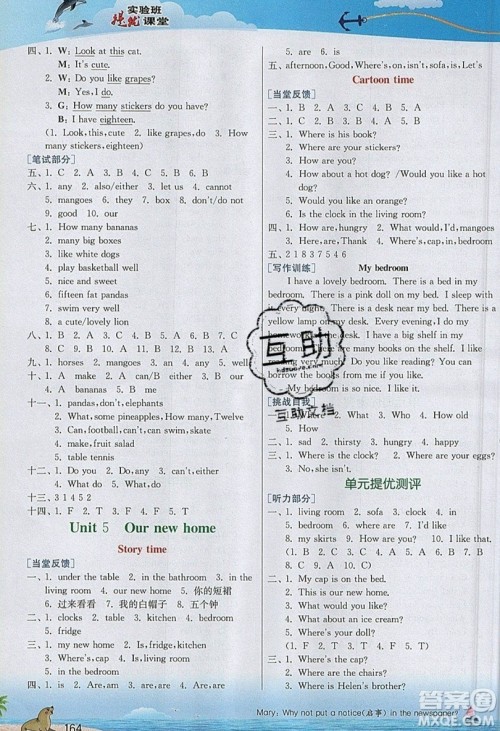 实验班
提优课堂
四、1. W: Look at this cat.
M: It's cute.
2. W: Do you like grapes?
M: Yes, I do.
3. G: How many stickers do you have?
B: I have eighteen.
(1. Look, this, cute 2. like grapes, do 3. How
many stickers, eighteen)
[笔试部分]
五、1. C 2. A 3. A 4. C 5. B
六、1. any 2. also/either 3. let 4. cannot
5. mangoes 6. they 7. box 8. don't/do not
9. good 10. our
七、1. How many bananas
2. many big boxes
3. like white dogs
4. play basketball well
5. nice and sweet
6. fifteen pandas
7. swim very well
8. a cute/lovely lion
八、1. B 2. A 3. B 4. C 5. A 6. B 7. B
8. C 9. C 10. A 11. C 12. B
九、1. horses 2. mangoes 3. an 4. any 5. well
十、1. A make 2. A can/B either 3. B or
4. A bananas 5. B me
十一、1. pandas, don't, elephants
2. What, some pineapples, How many, Twelve
3. Can, football, can't, basketball, well
4. make, fruit salad
5. table tennis
十二、1. C 2. D 3. E 4. B 5. A
十三、3 1 4 5 2
十四、1. F 2. F 3. T 4. T 5. F
Unit 5 Our new home
Story time
[当堂反馈]
一、1. under the table 2. in the bathroom 3. in
the living room 4. in the kitchen 5. 你的短裙
6. 过来看看 7. 我的白帽子 8. 五个钟
二、1. clocks 2. table 3. living room 4. bedroom
5. fridge
三、1. my new home 2. Is, kitchen, fridge
3. Where's, cap, living room
4. Where are, are, bedroom
四、1. is 2. Are, are 3. are, are 4. is, is
5. are 6. is
五、afternoon, Good, Where's, on, isn't, sofa, is, Let's
Cartoon time
[当堂反馈]
一、1. B 2. A 3. C 4. A 5. B
二、1. B 2. A 3. B 4. C 5. A
三、1. Where is his book?
2. Where are your stickers?
3. How are you?
4. How about a hot dog?
5. Would you like an orange?
6. Is the clock in the living room?
四、1. How are, hungry 2. Would, I'd, mangoes
3. Here, Thank 4. Where's, cap, in, bedroom
五、2 1 8 3 7 5 4 6
[写作训练] My bedroom
I have a lovely bedroom. There is a bed in my
bedroom. There is a pink doll on my bed. I sleep with
it every night. There is a desk near the bed. There is a
yellow lamp on my desk. Every evening, I do my
There is a big shelf near the
many books on the shelf. I like
reading very much. Do you like reading? You can
borrow the books from me if you like.
My bedroom is so nice. I like it.
[挑战自我] 一、1. What 2. Who 4. How old
5. How
二、1. sad 2. thirsty 3. hungry 4. happy
三、1. Where is the clock? 2. How are you?
3. No, she isn't.
单元提优测评
[听力部分]
一、1. living room 2. sofa 3. clock 4. in
5. bedroom
(1. F 2. F 3. T 4. T 5. T)
二、1. My cap is on the bed.
2. This is our new home.
3. How old are you?
4. What about an ice cream?
5. Where's your doll?
(1. F 2. T 3. F 4. F 5. T)
三、1. Where are my skirts?
2. Where is Helen's brother?
Mary: Why not put a notice(启事) in the newspaper?
164
互助
互助文档
答案圈
MXQE.COM